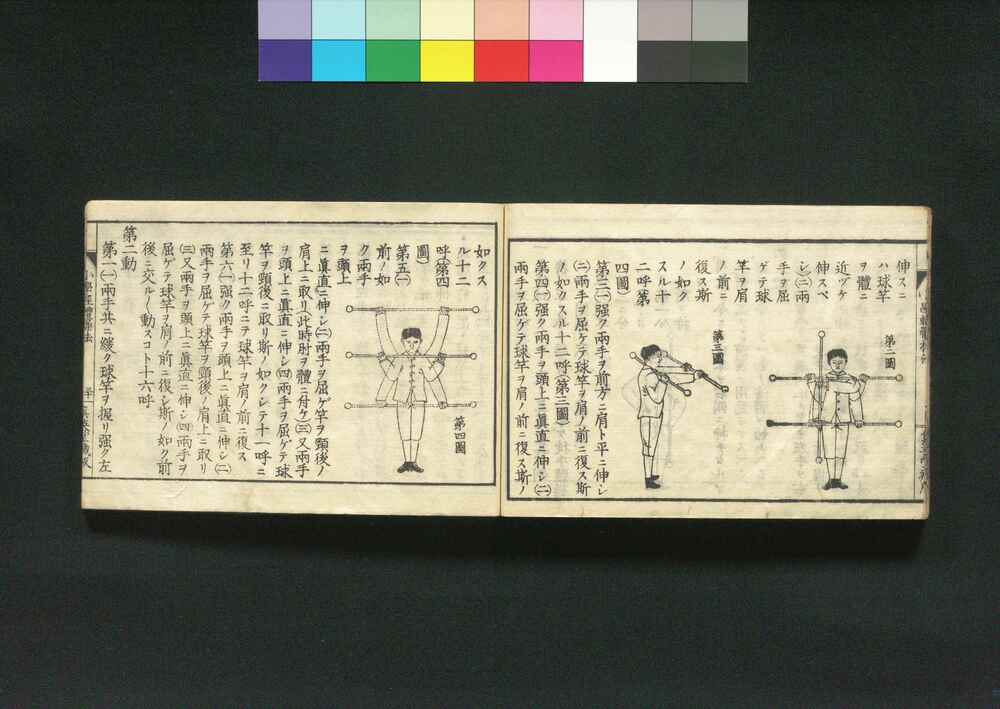 伸スニ
ハ球竿
ヲ體ニ
近ヅケ
伸スベ
シ㈡兩
手ヲ屈
ゲテ球
竿ヲ肩
ノ前ニ
復ス斯
ノ如ク
スル十
二呼第
四圖)
第三㈠强ク兩手ヲ前方ニ肩ト平ニ伸シ
㈡兩手ヲ屈ゲテ球竿ヲ肩ノ前ニ復ス斯
ノ如クスル十二呼(第三圖)
第四㈠强ク兩手ヲ頭上ニ眞直ニ伸シ㈡
兩手ヲ屈ゲテ球竿ヲ肩ノ前ニ復ス斯ノ
第二圖
第三圖
如クス
ル十二
呼(第四
圖)
第五㈠
前ノ如
ク兩手
ヲ頭上
ニ眞直ニ伸シ㈡兩手ヲ屈ゲ竿ヲ頸後ノ
肩上ニ取リ(此時肘ヲ體ニ付ケ)㈢又兩手
ヲ頭上ニ眞直ニ伸シ㈣兩手ヲ屈ゲテ球
竿ヲ頸後ニ取リ斯ノ如クシテ十一呼ニ
至リ十二呼ニテ球竿ヲ肩ノ前ニ復ス
第六㈠强ク兩手ヲ頭上ニ眞直ニ伸シ㈡
兩手ヲ屈ゲテ球竿ヲ頸後ノ肩上ニ取リ
㈢又兩手ヲ頭上ニ眞直ニ伸シ㈣兩手ヲ
屈ゲテ球竿ヲ肩ノ前ニ復シ斯ノ如ク前
後ニ交ルく動スコト十六呼
第二動
第一㈠兩手共ニ緩ク球竿ヲ握リ强ク左
第四圖